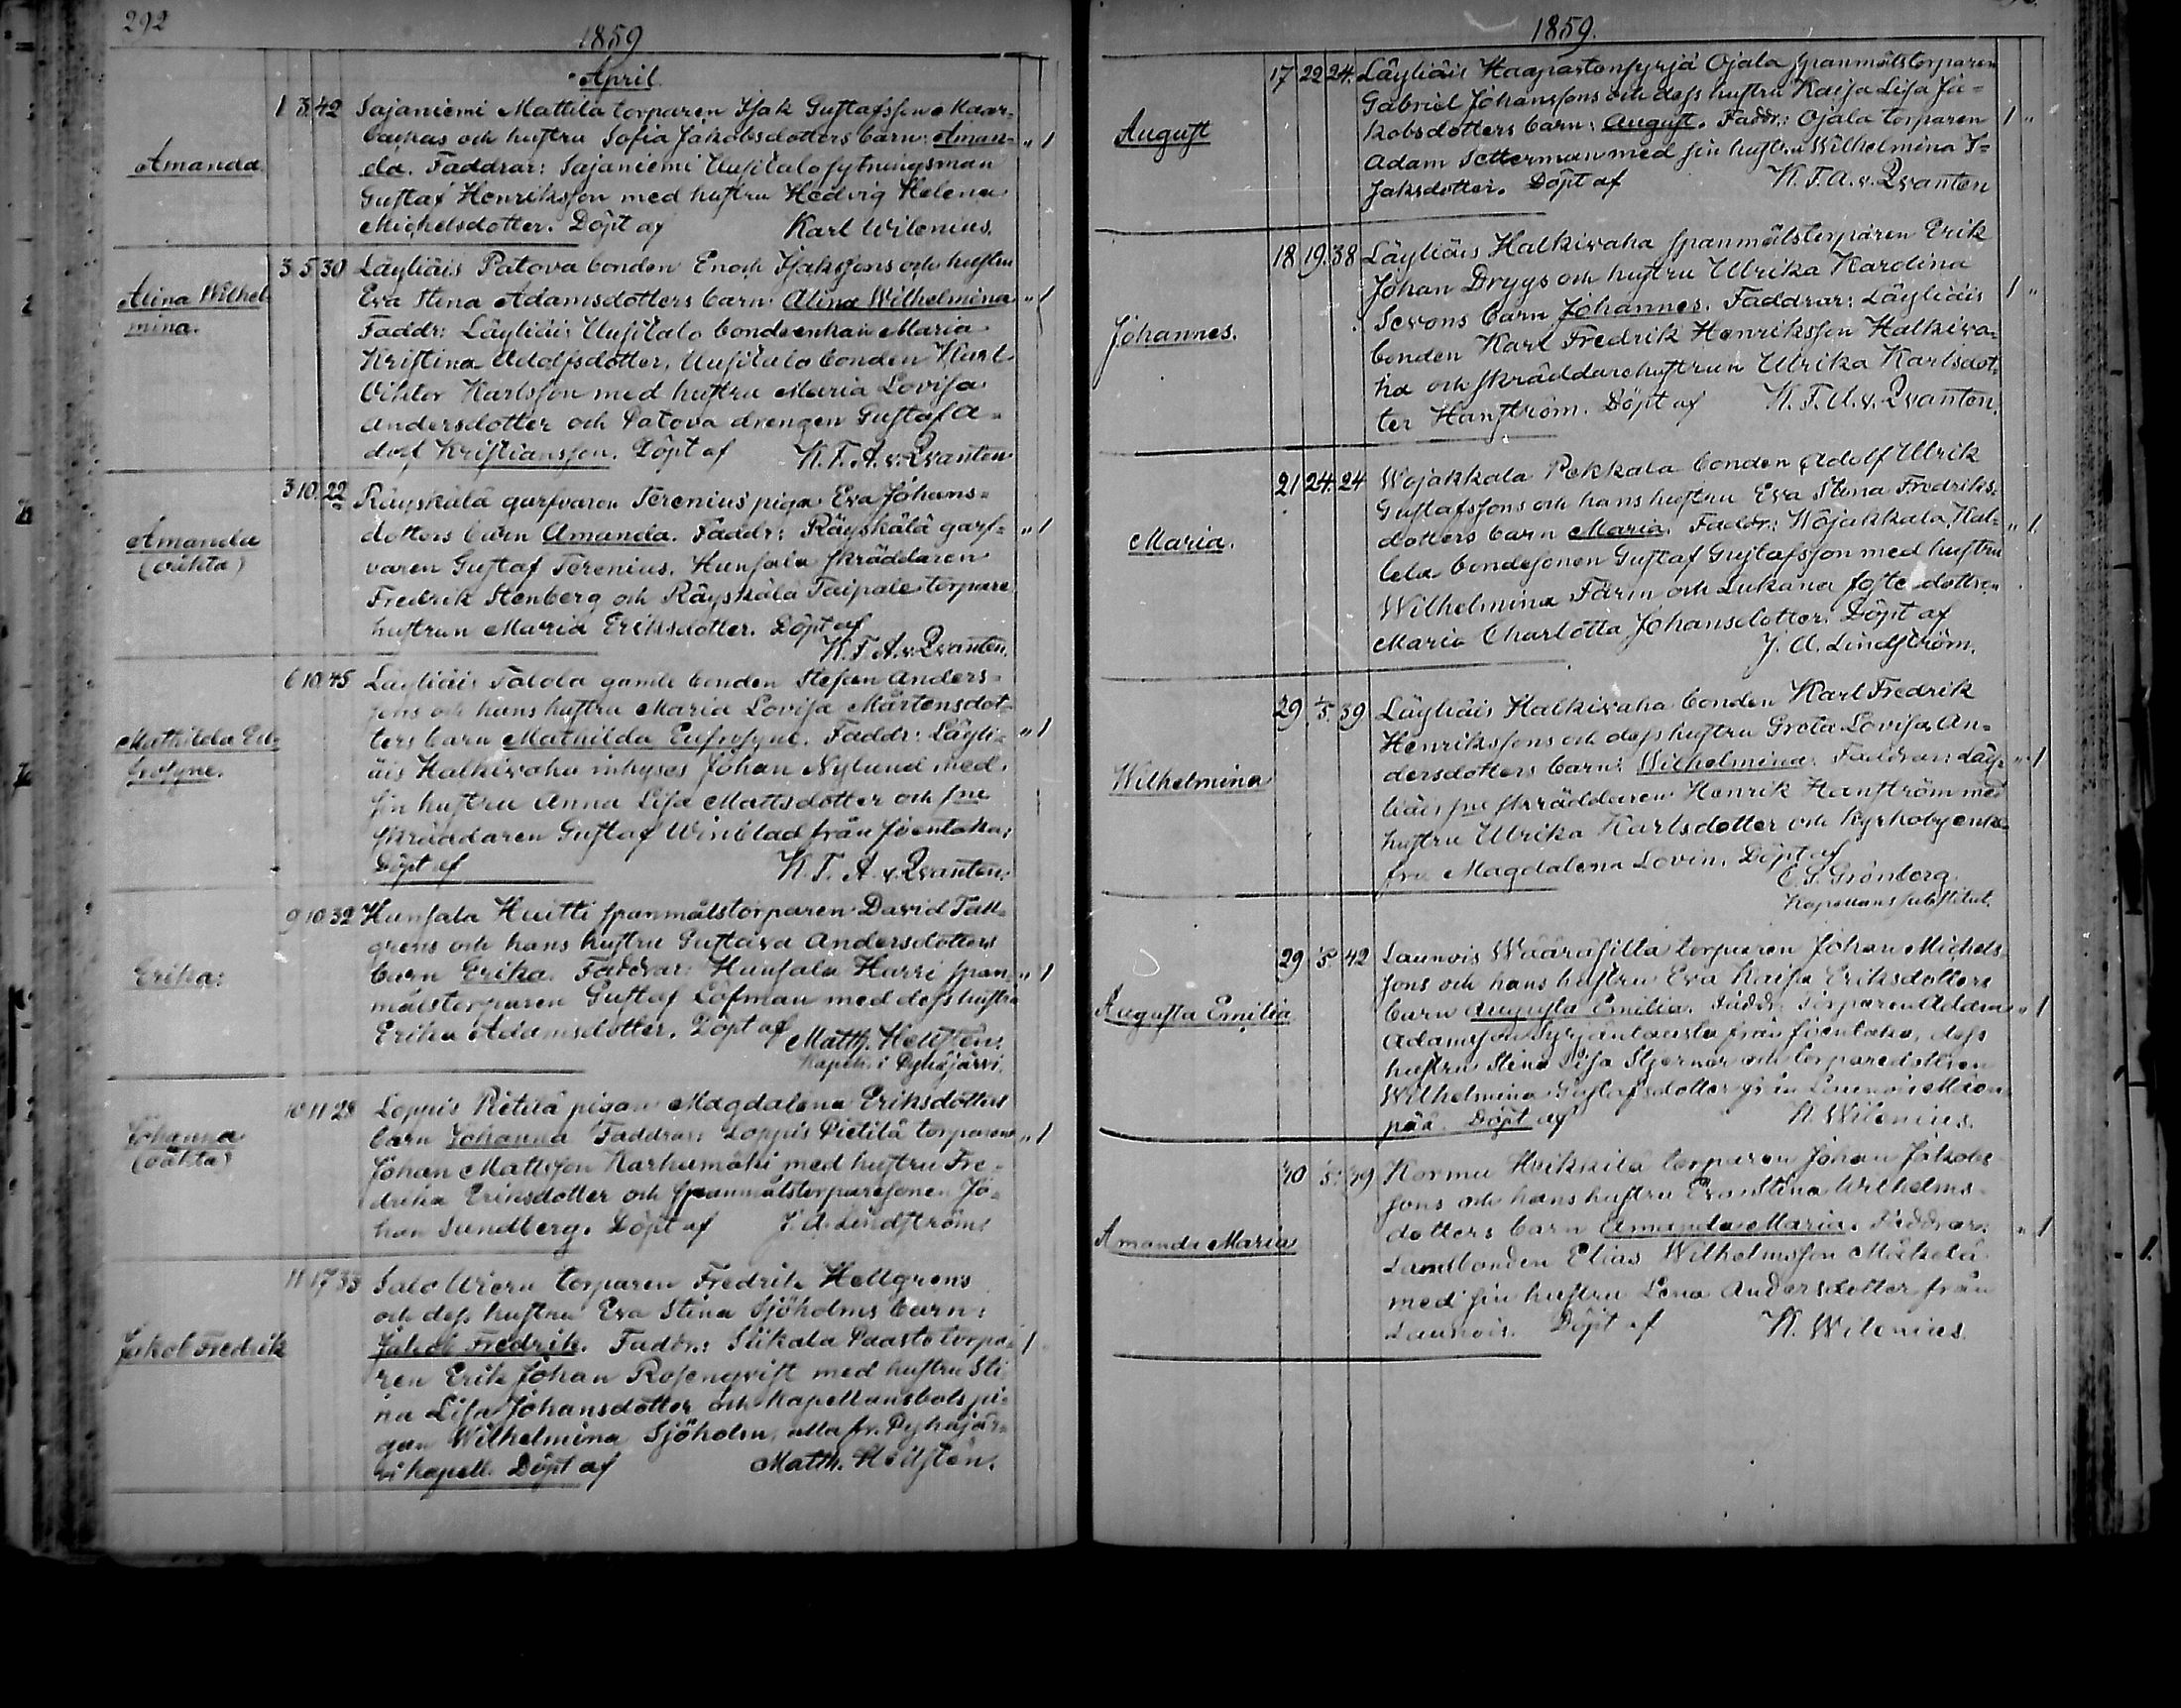 292
1859
April
Amanda
1 3 42 Sajaniemi Mattila torparen Isak Gustafsson
backas och hustru Sofia Jakobsdotters barn: Aman- " 1
da. Faddrar: Sajaniemi Uusitalo sytningsman
Gustaf Henriksson med hustru Hedvig Helena
Michelsdotter. Döpt af Karl Wilenius.
Alina Wilhel-
mina.
3 5 30 Läyliäis Patova bonden Enoch Isakssons och hustru
Eva Stina Adamsdotters barn: Alina Wilhelmina " 1
Faddr: Läyliäis Uusitalo bondeenkan Maria
Kristina Adolfsdotter, Uusitalo bonden Karl
Viktor Karlsson med hustru Maria Lovisa
Andersdotter och Patova drengen Gustaf A-
dolf Kristiansson. Döpt af K. F. A. v. Qvanten
Amanda
(oäkta)
3 10 22 Räyskälä garfvaren Terenius piga Eva Johans-
dotters barn Amanda. Faddr: Räyskälä garf- " 1
varen Gustaf Terenius. Hunsala skräddaren
Fredrik Stenberg och Räyskälä Taipale torpare
hustrun Maria Eriksdotter. Döpt af
K. F. A. v. Qvanten.
Mathilda Eu-
frosyne.
6 10 45 Läyliäis Talola gamle bonden Stefan Anders-
sons och hans hustru Maria Lovisa Mårtensdot-
ters barn Mathilda Eufrosyne. Faddr: Läyli- " 1
äis Halkivaha inhyses Johan Nylund med
sin hustru Anna Lisa Mattsdotter och sne
skräddaren Gustaf Winblad från Joentaka:
Döpt af K. F. A. v. Qvanten.
Erika:
9 10 32 Hunsala Huitti spanmålstorparen David Tall-
grens och hans hustru Gustava Andersdotters
barn Erika. Faddrar: Hunsala Harri span- " 1
målstorparen Gustaf Löfman med dess hustru
Erika Adamsdotter. Döpt af Matth. Hellstén.
Kapell. i Pyhäjärvi.
Johanna
(oäkta)
10 11 28 Loppis Pietilä pigan Magdalena Eriksdotters
barn Johanna Faddrar: Loppis Pietilä torparen " 1
Johan Mattsson Karhumäki med hustru Fre-
drika Eriksdotter och spanmålstorparesonen Jo-
han Sundberg. Döpt af J. A. Lindström.
Jakob Fredrik
11 17 33 Salo torparen Fredrik Hellgrens
och dess hustru Eva Stina Sjöholms barn:
Jakob Fredrik. Faddr.: Siikala Paasto torpa- 1
ren Erik Johan Rosenqvist med hustru Sti-
na Lisa Johansdotter och Kapellansbols pi-
gan Wilhelmina Sjöholm, alla fr. Pyhäjär-
vi kapell. Döpt af Matth. Hellstén.
1859.
August
17 22 24. Läyliäis Haapastonsyrjä Ojala spanmålstorparen
Gabriel Johanssons och dess hustru Kaisa Lisa Ja-
kobsdotters barn: August. Faddr: Ojala torparen 1 "
Adam Setterman med sin hustru Wilhelmina I-
saksdotter. Döpt af K. F. A. v. Qvanten
Johannes.
18 19 38 Läyliäis Halkivaha spanmålstorparen Erik
Johan Drygs och hustru Ulrika Karolina
Sevons barn Johannes. Faddrar: Läyliäis 1 "
bonden Karl Fredrik Henriksson Halkiva-
ha och skräddarehustrun Ulrika Karlsdot-
ter Hanström. Döpt af K. F. A. v. Qvanten.
Maria.
21 24 24 Wojakkala Pekkala bonden Adolf Ulrik
Gustafssons och hans hustru Eva Stina Fredriks-
dotters barn Maria. Faddr.: Wojakkala Kal- " 1
lela bondesonen Gustaf Gustafsson med hustru
Wilhelmina Färm och Lukana fosterdottren
Maria Charlotta Johansdotter. Döpt af
J. A. Lindström.
Wilhelmina
29 1/5 39 Läyliäis Halkivaha bonden Karl Fredrik
Henrikssons och dess hustru Greta Lovisa An-
dersdotters barn: Wilhelmina. Faddrar: Läy- " 1
liäis sne skräddaren Henrik Hanström med
hustru Ulrika Karlsdotter och Kyrkoby enke-
fru Magdalena Lovin. Döpt af
C. S. Grönberg.
Kapellans substitut.
Augusta Emilia
29 5 42 Launois Wääräsilta torparen Johan Michels-
sons och hans hustru Eva Kaisa Eriksdotters
barn Augusta Emilia. Faddr: torparen Adam " 1
Adamsson Syrjäntausta från Joentaka, dess
hustru Stina Lisa Stjernar och torparedottren
Wilhelmina Gustafsdotter från Launois
pää. Döpt af K. Wilenius.
Amanda Maria
30 5 39 Kormu Heikkilä torparen Johan Jakobs-
sons och hans hustru Eva Stina Wilhelms-
dotters barn Amanda Maria. Faddrar: " 1
Landbonden Elias Wilhelmsson Mäkelä
med sin hustru Lena Andersdotter från
Launois. Döpt af K. Wilenius.